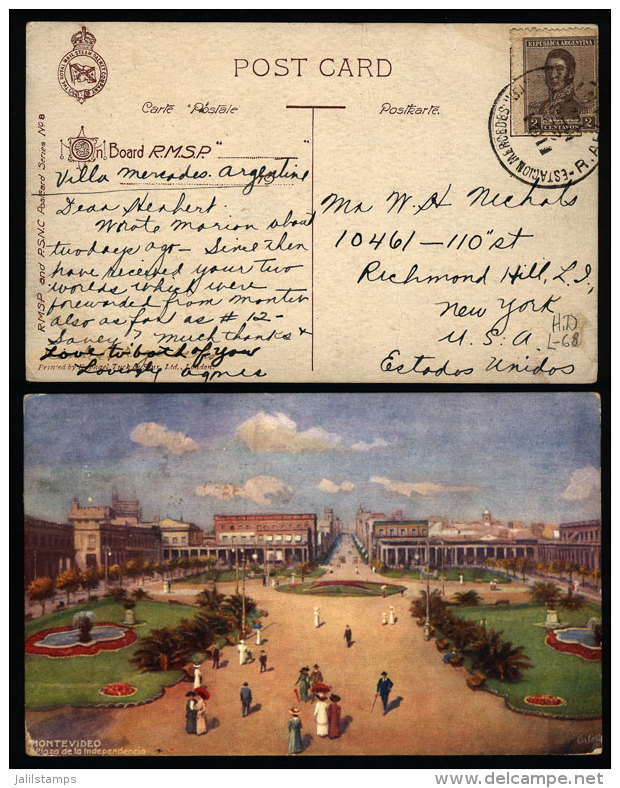 POST CARD
Carte Postale
Postkarte.
On Board R.M.S.P. "
"
Villa Mercedes. Argentine
Dear Herbert.
Wrote Marion about
two days ago - Since then
have received your two
worlds which were
forewarded from Montev
also as far as # 12-
much thanks &
Love to both of you
Lovingly Agnes
Printed by Raphael Tuck & Sons, Ltd., London.
R.M.S.P. and P.S.N.C. Postcard Series No 8
THE ROYAL MAIL STEAM PACKET COMPANY
REPUBLICA ARGENTINA
2 CENTAVOS 2
ESTACION MERCEDES
R.A.
Mr W. H Nichols
10461 - 110" st
Richmond Hill, L.I.,
New York
U.S.A.
Estados Unidos
H.D
L-68
MONTEVIDEO
Plaza de la Independencia
jalilstamps
www.delcampe.net